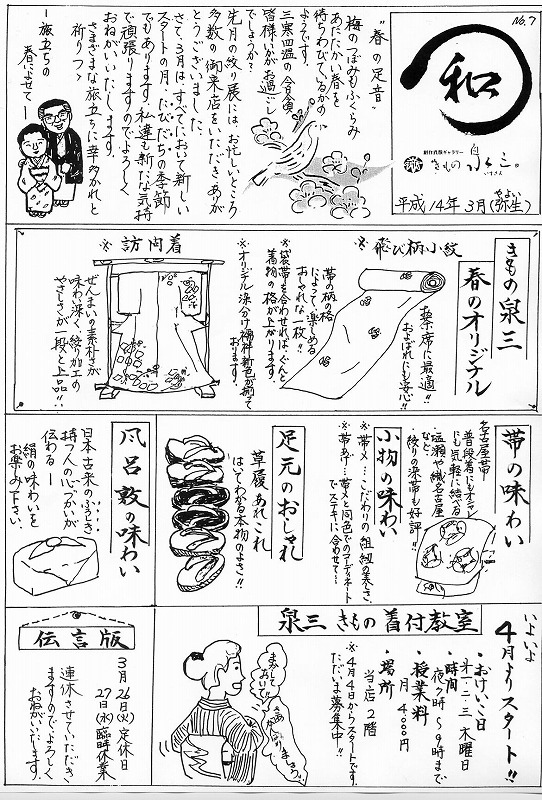 No.7
和
創作呉服ギャラリー
きもの 泉三。
いずさん
平成14年3月(弥生)
やよい
"春の足音"
梅のつぼみもふくらみ
あたたかい春を
待ちわびているかの
ようです。
三寒四温の今日この頃
皆様いかがお過ごし
でしょうか?
先月の絞り展には、お忙しいところ
多数の御来店をいただきありが
とうございました。
さて、3月はすべてにおいて新しい
スタートの月、たびだちの季節
でもあります。私達も新たな気持
で頑張りますのでよろしく
おねがいいたします。
さまざまな旅立ちに幸多かれと
祈りつつ
ー旅立ちの
春によせてー
きもの泉三
春のオリジナル
※飛び柄小紋
茶席に最適!!
およばれにも安心!!
帯の柄の格
によって、楽しめる
おしゃれな一枚!!
※袋帯を合わせれば、ぐんと
着物の格が上がります。
※オリジナル染分け
福林新色が揃って
おります。
※訪問着
ぜんまいの素朴さが
味わい深く、絞り加工の
やさしさが一段と上品!!
帯の味わい
名古屋帯
普段着にもオシャレ
にも気軽に結べる
・塩瀬や織名古屋
など
・絞りの染帯も好評!!
小物の味わい
※帯〆…こだわりの組紐の美しさ
※帯あげ…帯〆と同色でのコーディネート
でステキに合わせて…
足元のおしゃれ
草履あれこれ
はいてわかる本物のよさ!!
風呂敷の味わい
日本古来のふろしき
持つ人の心づかいが
伝わるー
絹の味わいを
お楽しみ下さい。
泉三きもの着付教室
いよいよ
4月よりスタート!!
・おけいこ日
第一・二・三 木曜日
・時間
夜7時〜9時まで
・授業料
月 4,000円
・場所
当店2階
※4月4日からスタートです。
ただいま募集中!!
まかして
おいで!!
さあ
はじめ
りましょう
伝言版
3月26日(火) 定休日
27日(水) 臨時休業
連休させていただき
ますのでよろしく
おねがいいたします。